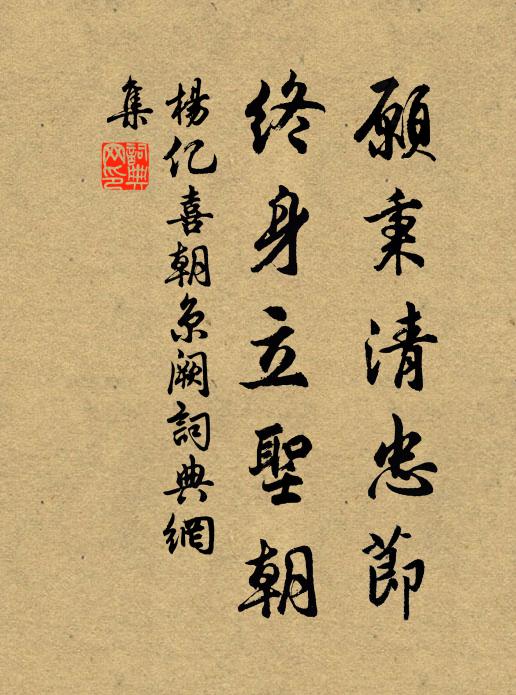 願秉清忠節
終身立聖朝
楊亿喜朝京阙詞典網
集
詞典網印